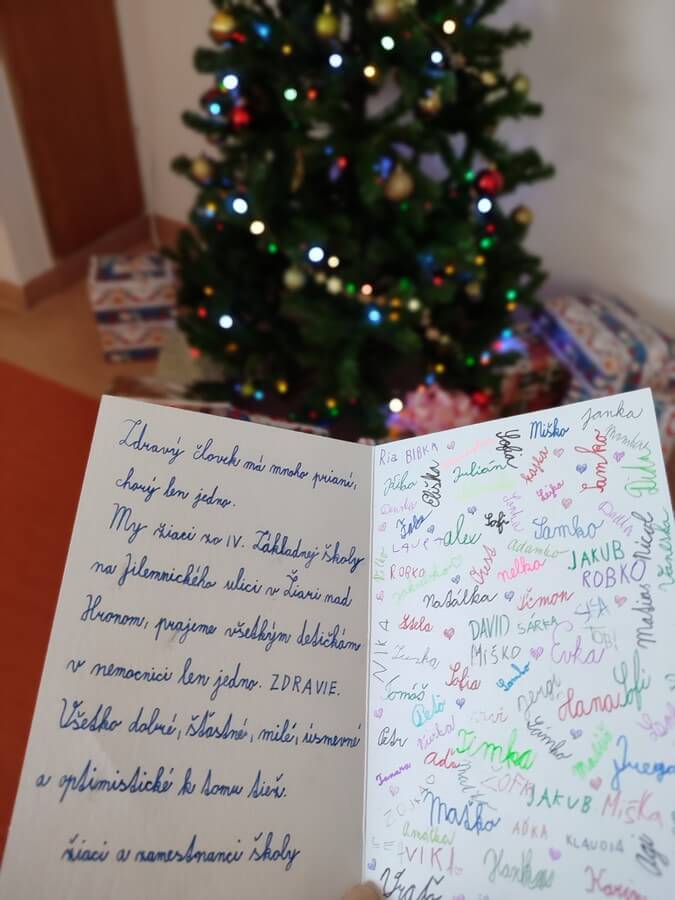 Zdravý človek má mnoho prianí,
chorý len jedno.
My žiaci zo IV. Základnej školy
na Jilemnického ulici v Žiari nad
Hronom, prajeme všetkým detičkám
v nemocnici len jedno. ZDRAVIE.
Všetko dobré, šťastné, milé, úsmevné
a optimistické k tomu tiež.
žiaci a zamestnanci školy
Janka
Miško
Ria BIBKA
Sofia
Samko
Júlia
Eliška
Julián
Dida
alex
Sofi
Samko
Adamko
JAKUB
Nicol
Vaneska
ROBKO
nelka
ROBKO
Matias
Natálka
Šimon
Stela
DAVID
SÁRKA
NIKA
MIŠKO
Evka
Sofia
Tomáš
Hana
Sofi
Petr
Timka
Tamara
JAKUB
Miška
Maťko
AĎKA
KLAUDIA
VIKI
Karin